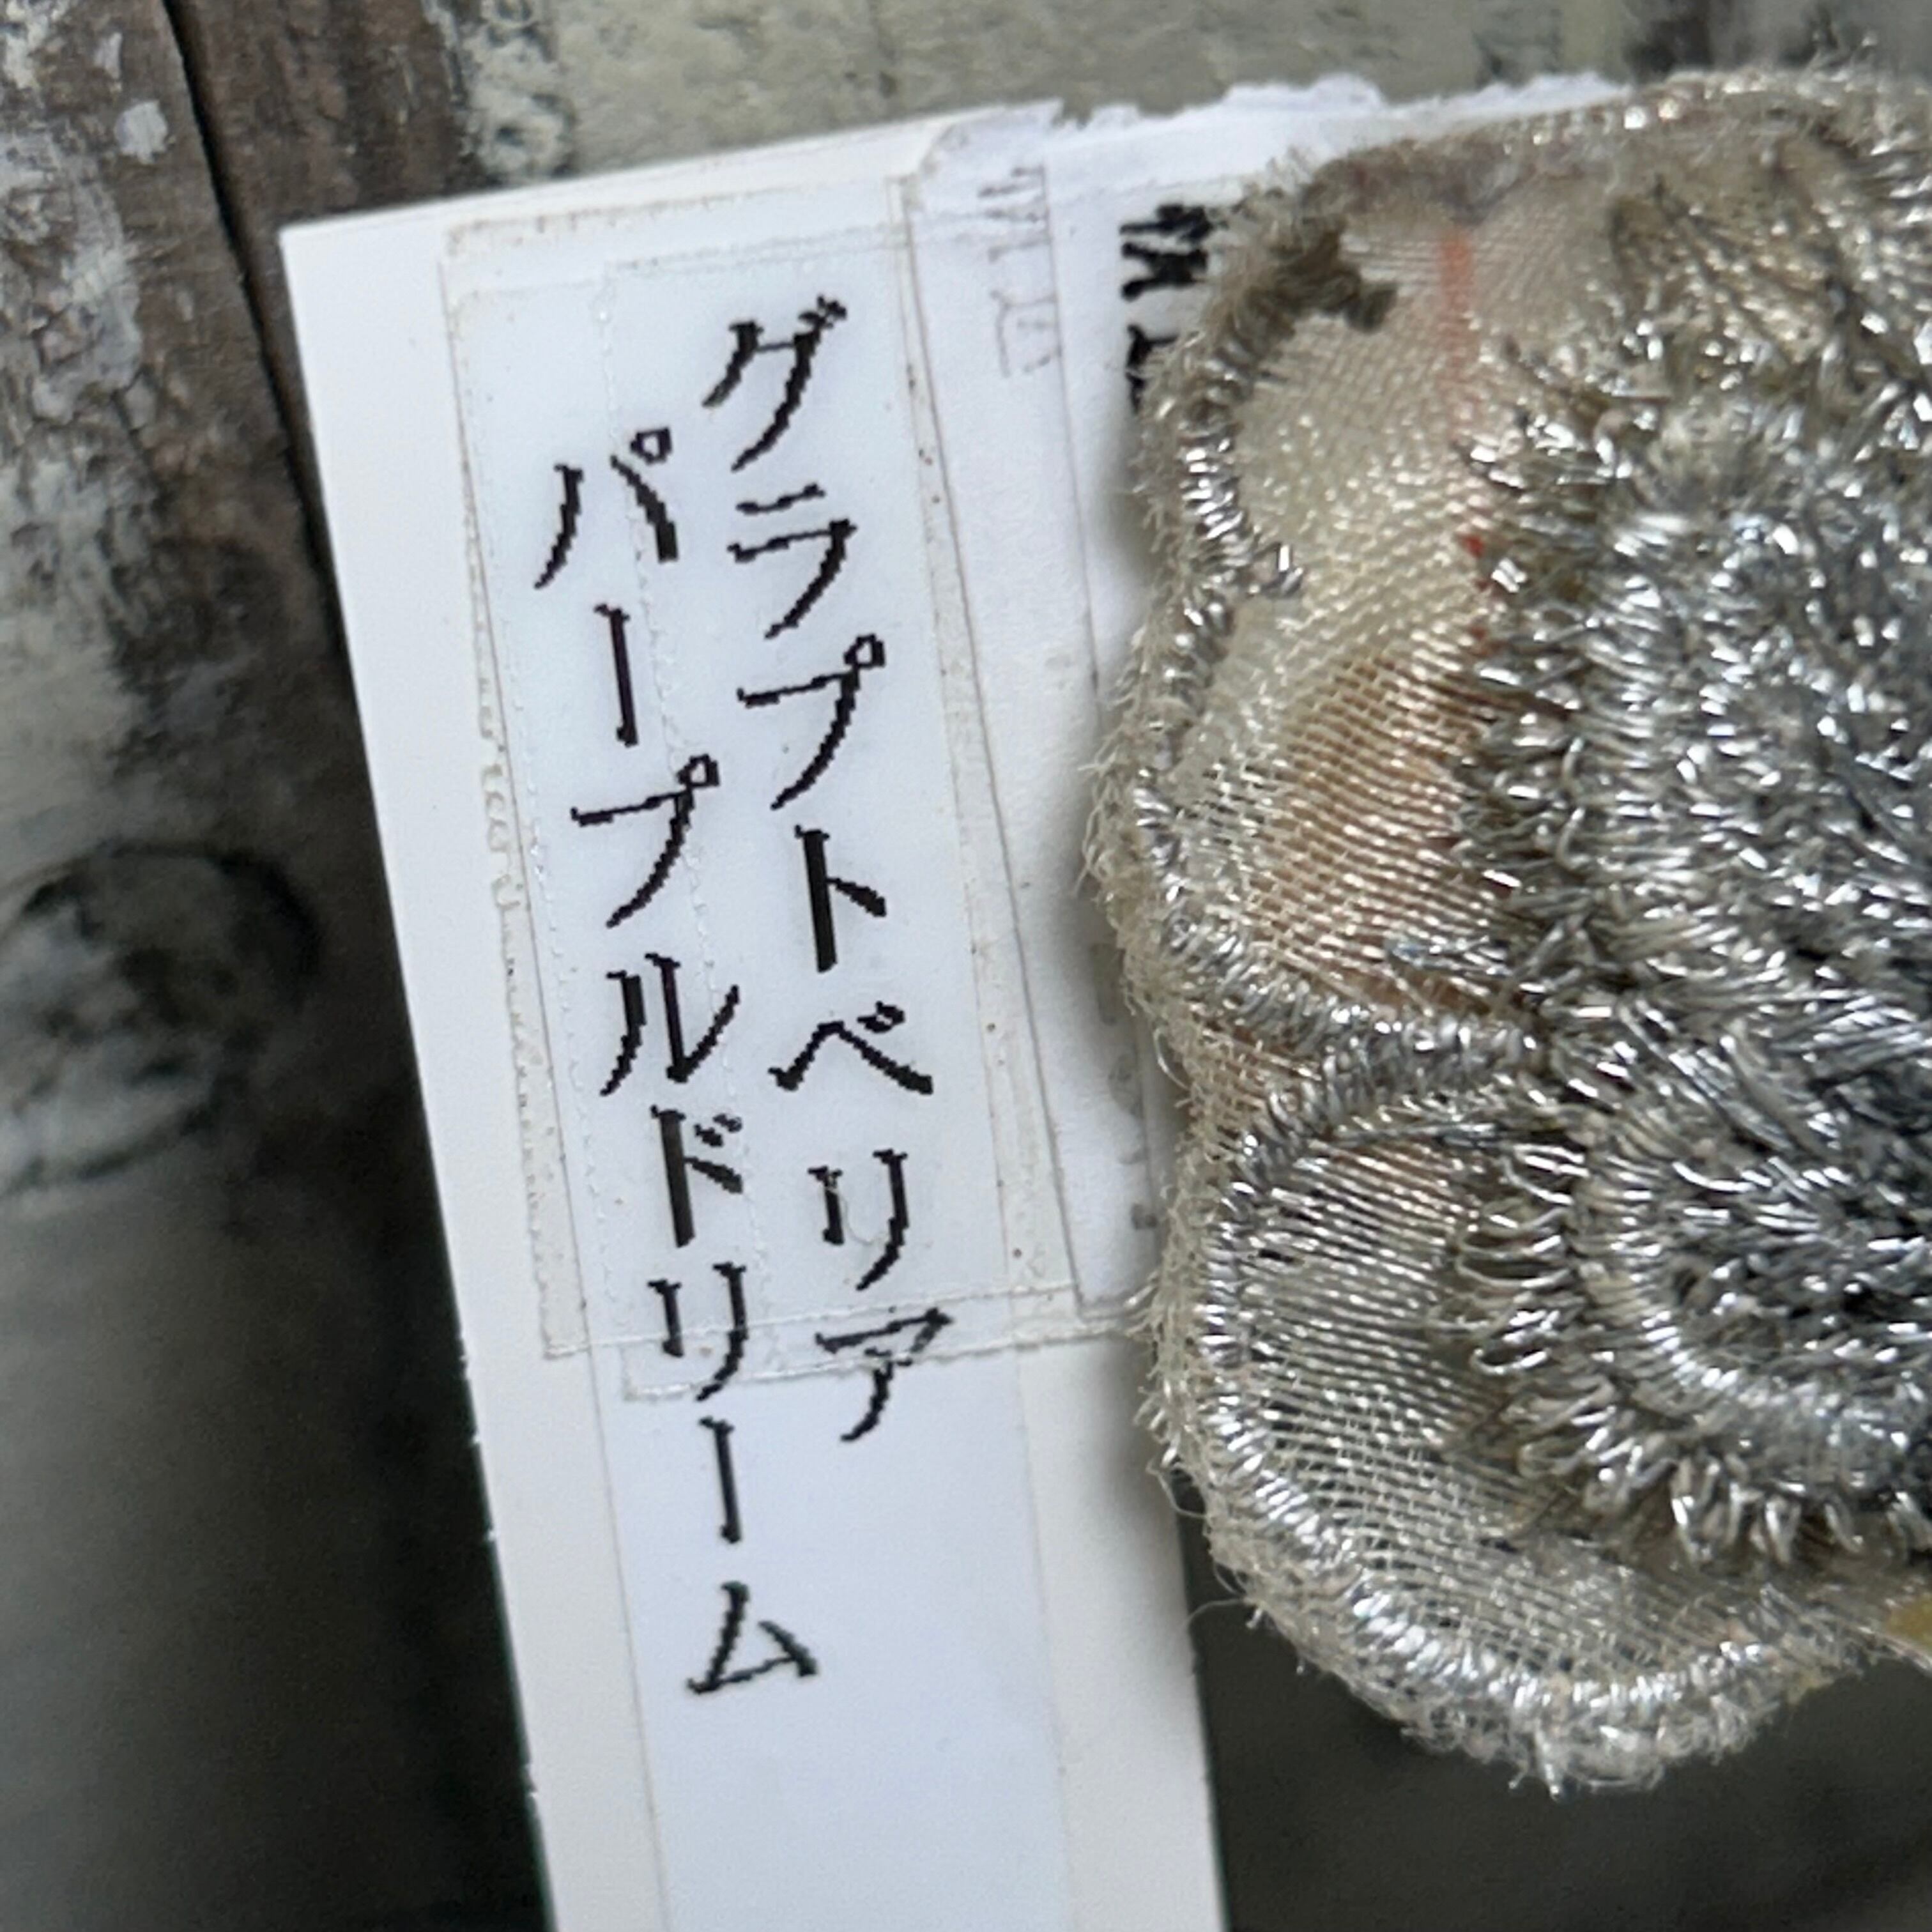 グラプトベリア
パープルドリーム